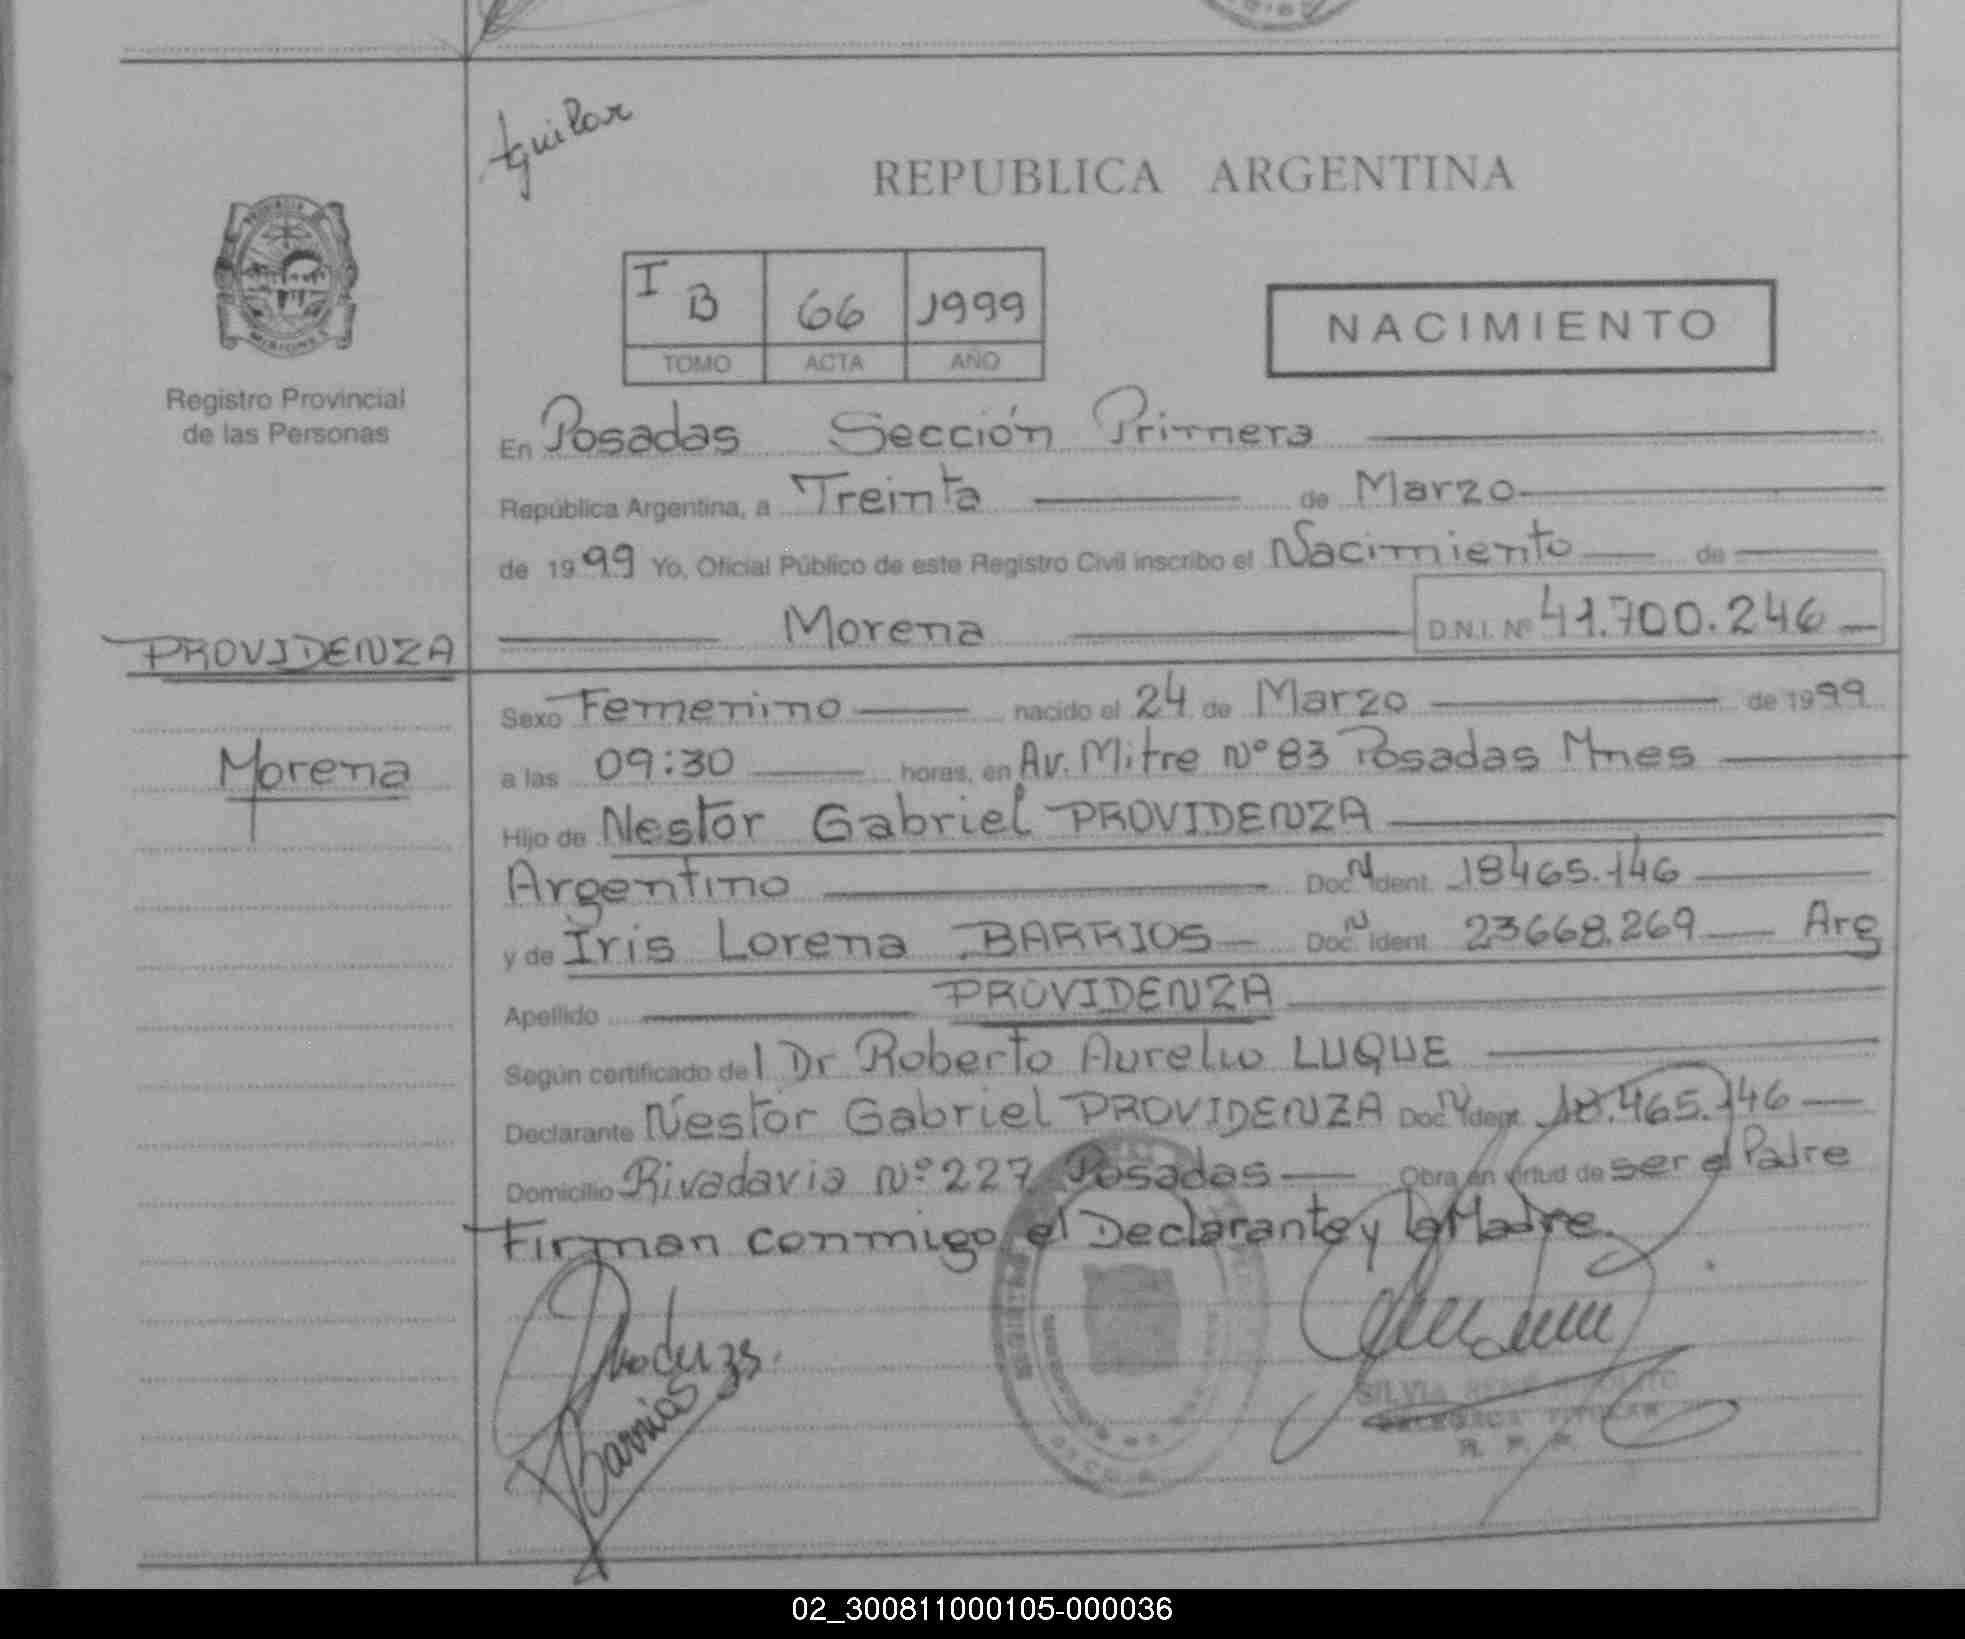 Aguilar
REPUBLICA ARGENTINA
I B 66 1999
TOMO ACTA AÑO
NACIMIENTO
Registro Provincial
de las Personas
En Posadas Sección Primera
República Argentina, a Treinta de Marzo
de 1999 Yo, Oficial Público de este Registro Civil inscribo el Nacimiento de
Morena D.N.I. Nº 41.700.246
PROVIDENZA
Morena
Sexo Femenino nacido el 24 de Marzo de 1999
a las 09:30 horas, en Av. Mitre Nº 83 Posadas Mnes
Hijo de Nestor Gabriel PROVIDENZA
Argentino Doc. N Ident. 18465.146
y de Iris Lorena BARRIOS Doc. N Ident. 23668.269 Arg
Apellido PROVIDENZA
Según certificado del Dr Roberto Aurelio LUQUE
Declarante Nestor Gabriel PROVIDENZA Doc. N Ident. 18.465.146
Domicilio Rivadavia Nº 227 Posadas Obra en virtud de ser el Padre
Firman conmigo el Declarante y la Madre.
Barrios
SILVIA
DELEGADA TITULAR
R. P. P.
02_300811000105-000036